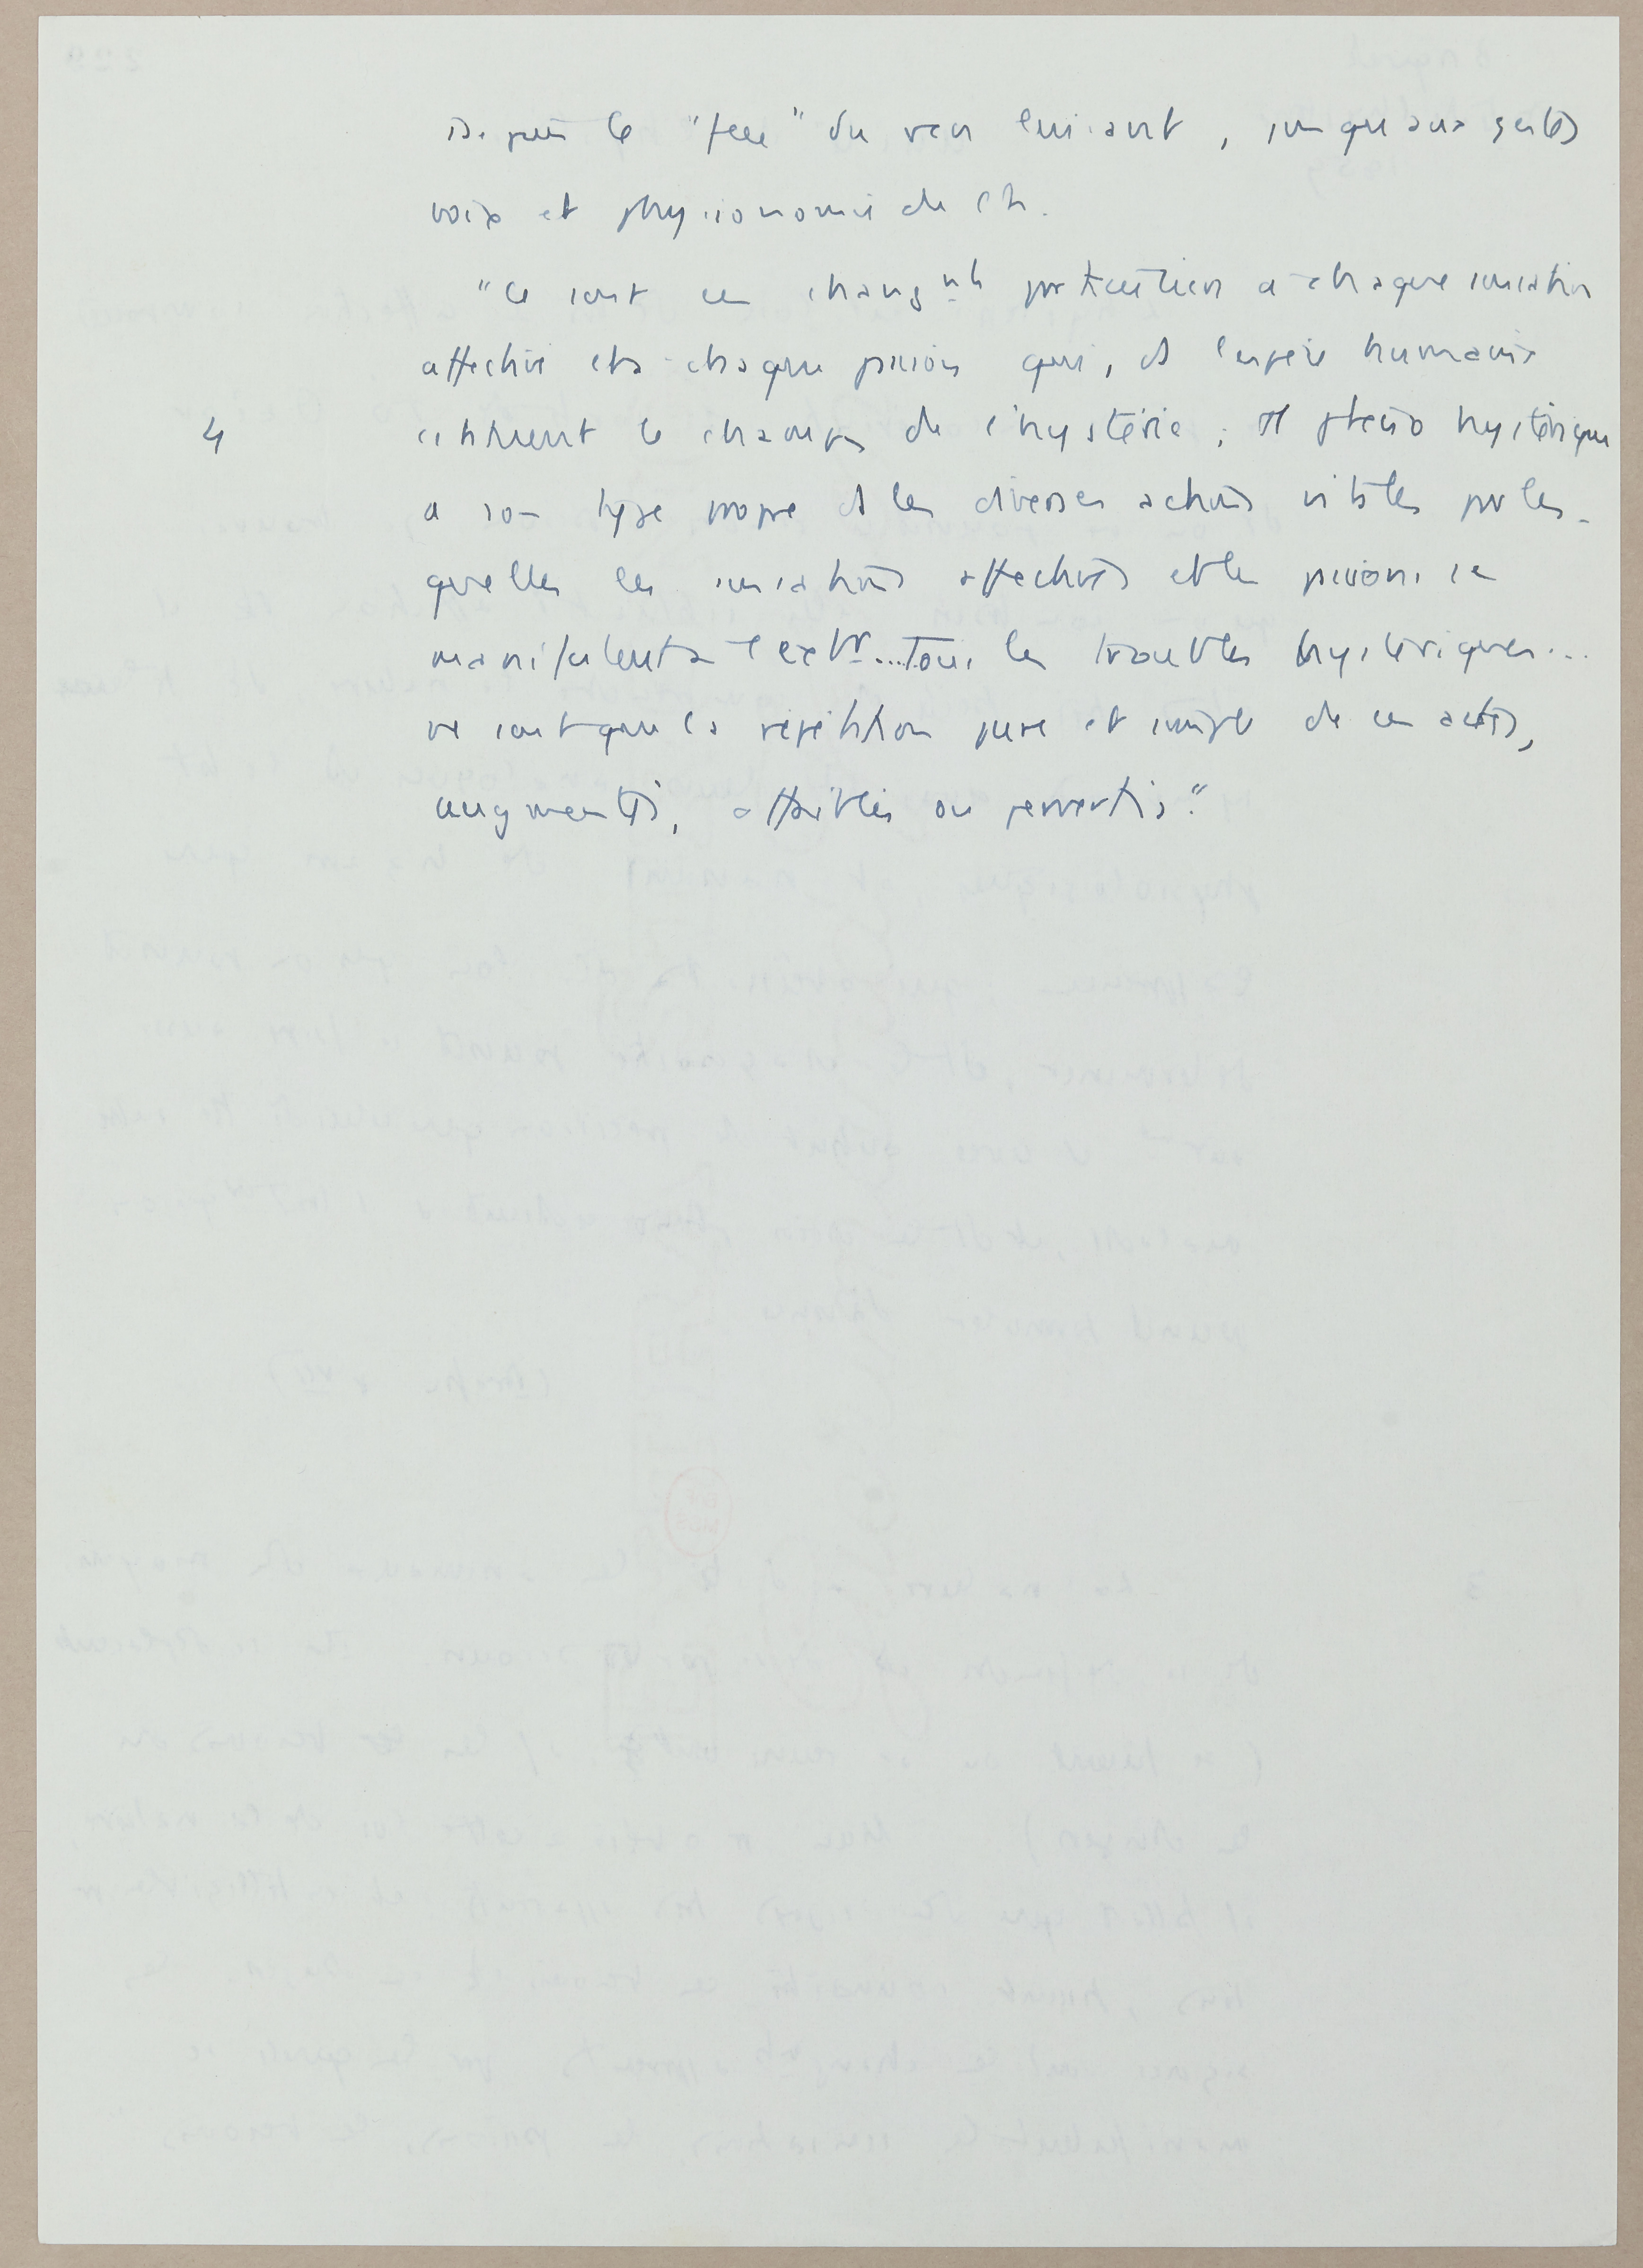 depuis le "feu" du ver luisant, jusqu'aux gestes
voix et physionomie de l'h.
"Ce sont ces chang^nts particuliers à chaque sensation
affective et à chaque passion qui, ds l'espèce humaine
constituent le champ de l'hystérie ; phéno hystérique
4
a son type propre ds les diverses actions visibles par les-
quelles les sensations affectives et les passions se
manifestent à l'ext^r...Tous les troubles hystériques...
ne sont que la répétition pure et simple de ces actes,
augmentés, affaiblis ou pervertis."